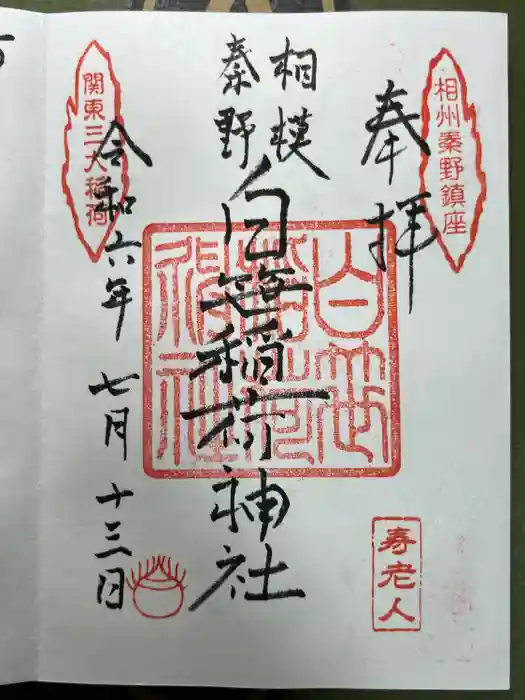 相州秦野鎮座
奉拝
相模
秦野
白笹稲荷神社
関東三大稲荷
令和六年七月十三日
寿老人